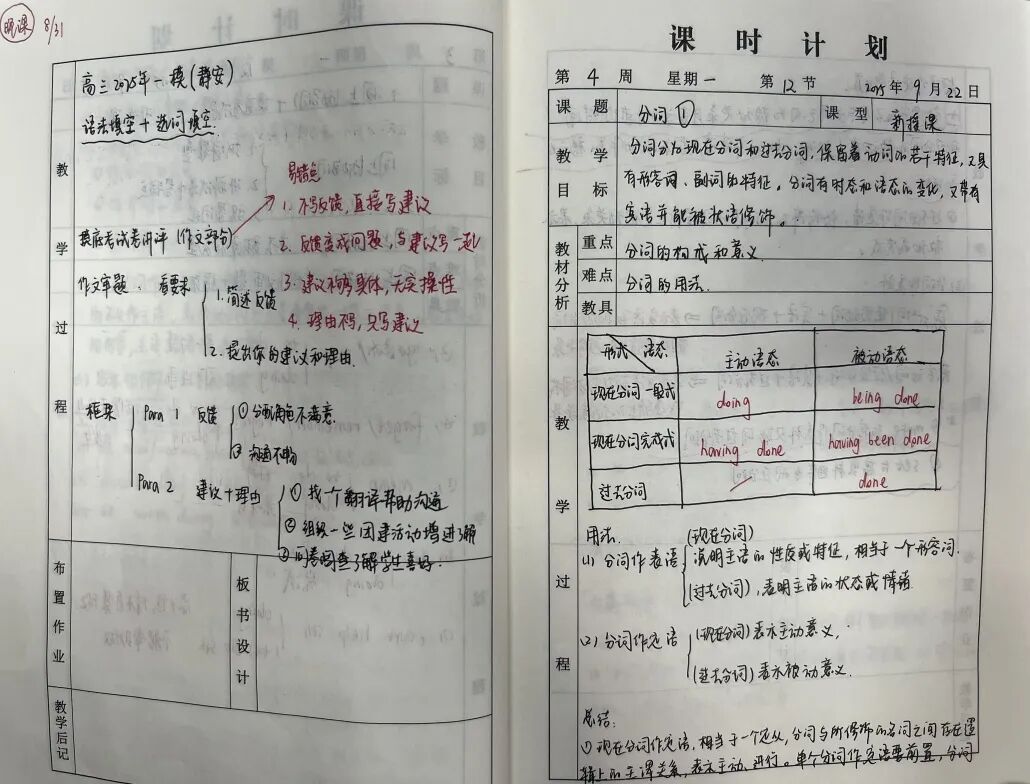 晚课 8/31
高三2025年一模(静安)
语法填空+选词填空.
易错点
1. 不写反馈,直接写建议
摸底考试卷讲评(作文部分)
2. 反馈变成问题,与建议写一起
作文审题. 看要求
1. 简述反馈
3. 建议不够具体,无实操性
4. 理由不写,只写建议
2. 提出你的建议和理由.
框架
Para 1 反馈
① 分配角色不满意.
② 沟通不畅
Para 2 建议+理由
① 找一个翻译帮助沟通
② 组织一些团建活动增进了解
③ 问卷调查了解学生喜好.
教学过程
布置作业
板书设计
教学后记
课时计划
第 4 周 星期一 第 12 节 2025年 9月 22日
课题 分词① 课型 新授课
教学目标
分词分为现在分词和过去分词,保留着动词的若干特征,又具
有形容词、副词的特征。分词有时态和语态的变化,又带有
宾语并能被状语修饰。
教材分析
重点 分词的构成和意义.
难点 分词的用法.
教具
教学过程
形式 语态 主动语态 被动语态
现在分词一般式 doing being done
现在分词完成式 having done having been done
过去分词 / done
用法.
(1) 分词作表语
(现在分词)
说明主语的性质或特征,相当于一个形容词.
(过去分词),表明主语的状态或情绪
(2) 分词作定语
(现在分词)表示主动意义,
(过去分词)表示被动意义.
总结:
① 现在分词作定语,相当于一个定从,分词与所修饰的名词之间存在逻
辑上的主谓关系,表示主动、进行。单个分词作定语要前置,分词